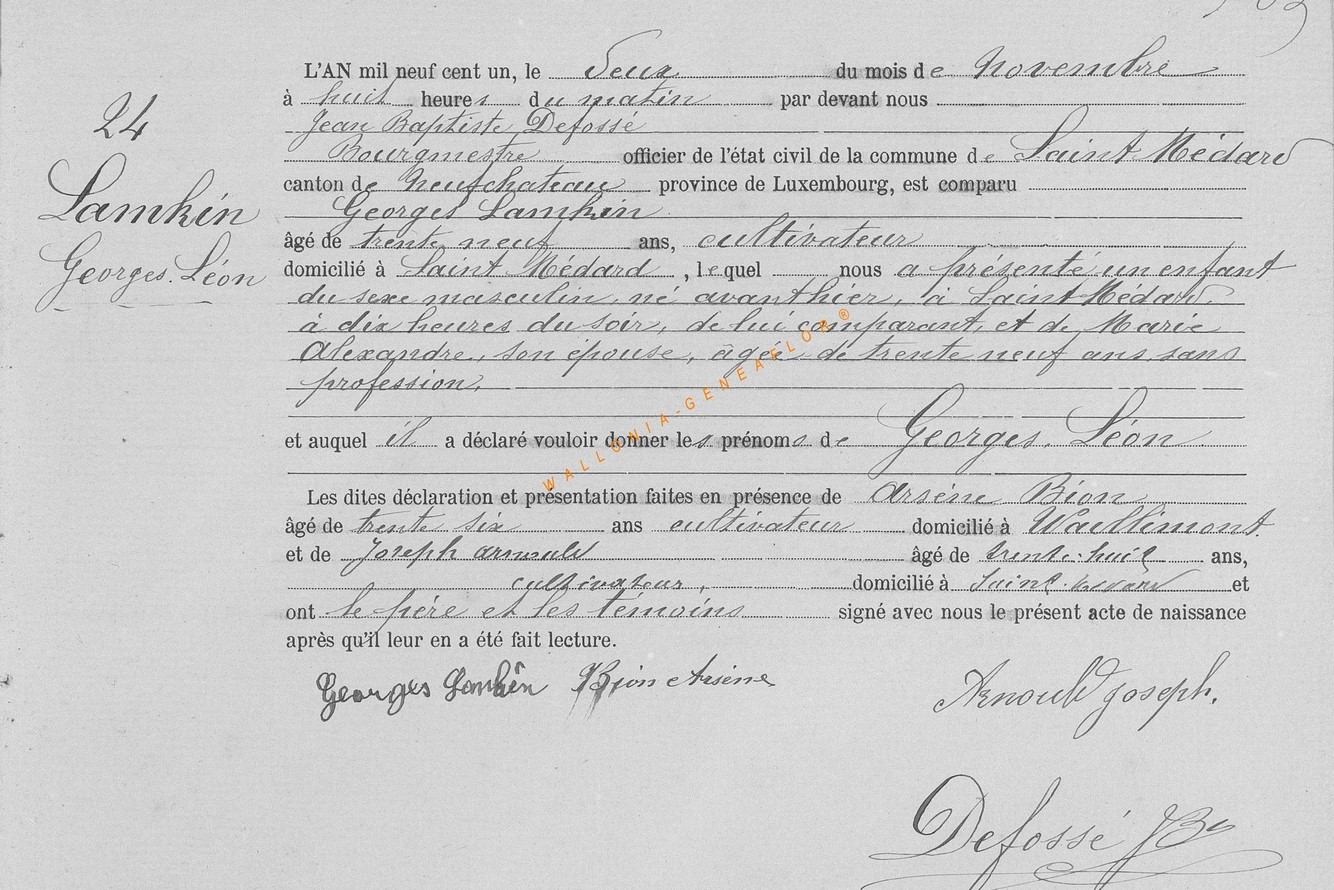 24
Lamkin
Georges Léon
L'AN mil neuf cent un, le deux du mois de Novembre
à huit heures du matin par devant nous
Jean Baptiste Defossé
Bourgmestre officier de l'état civil de la commune de Saint Médard
canton de Neufchateau province de Luxembourg, est comparu
Georges Lamkin
âgé de trente neuf ans, cultivateur
domicilié à Saint Médard, lequel nous a présenté un enfant
du sexe masculin, né avanthier, à Saint Médard,
à dix heures du soir, de lui comparant, et de Marie
Alexandre, son épouse, âgée de trente neuf ans sans
profession,
et auquel il a déclaré vouloir donner les prénoms de Georges, Léon
Les dites déclaration et présentation faites en présence de Arsène Bion
âgé de trente six ans cultivateur domicilié à Waillimont
et de Joseph Arnould âgé de trente-huit ans,
cultivateur, domicilié à Saint Médard et
ont le père et les témoins signé avec nous le présent acte de naissance
après qu'il leur en a été fait lecture.
Georges Lamkin Bion Arsène Arnould Joseph.
Defossé JB
WALLONIA-GENEAFLOR®